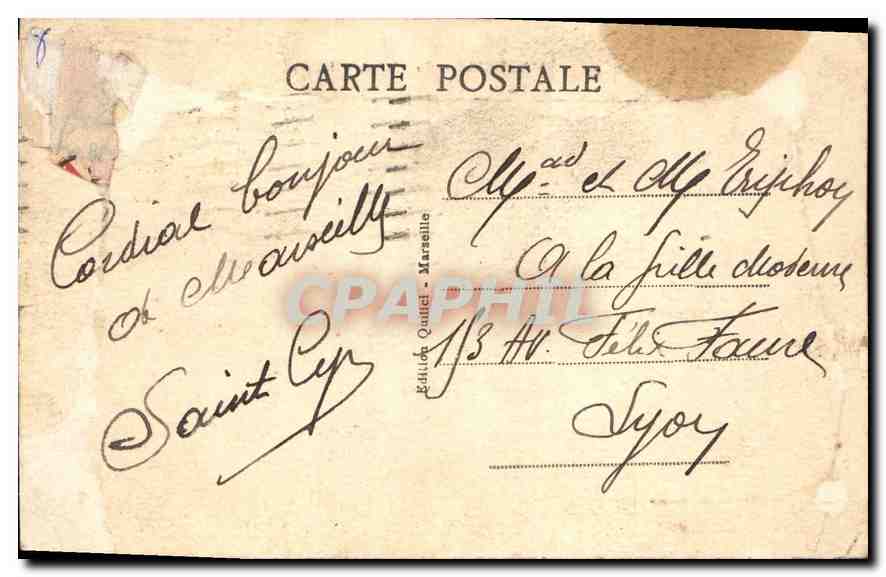 8
CARTE POSTALE
Cordial bonjour
de Marseille
Saint Cyr
Edition Quillet - Marseille
CPAPHIL
Mad et Mr
A la fille moderne
153 Av. Félix Faure
Lyon